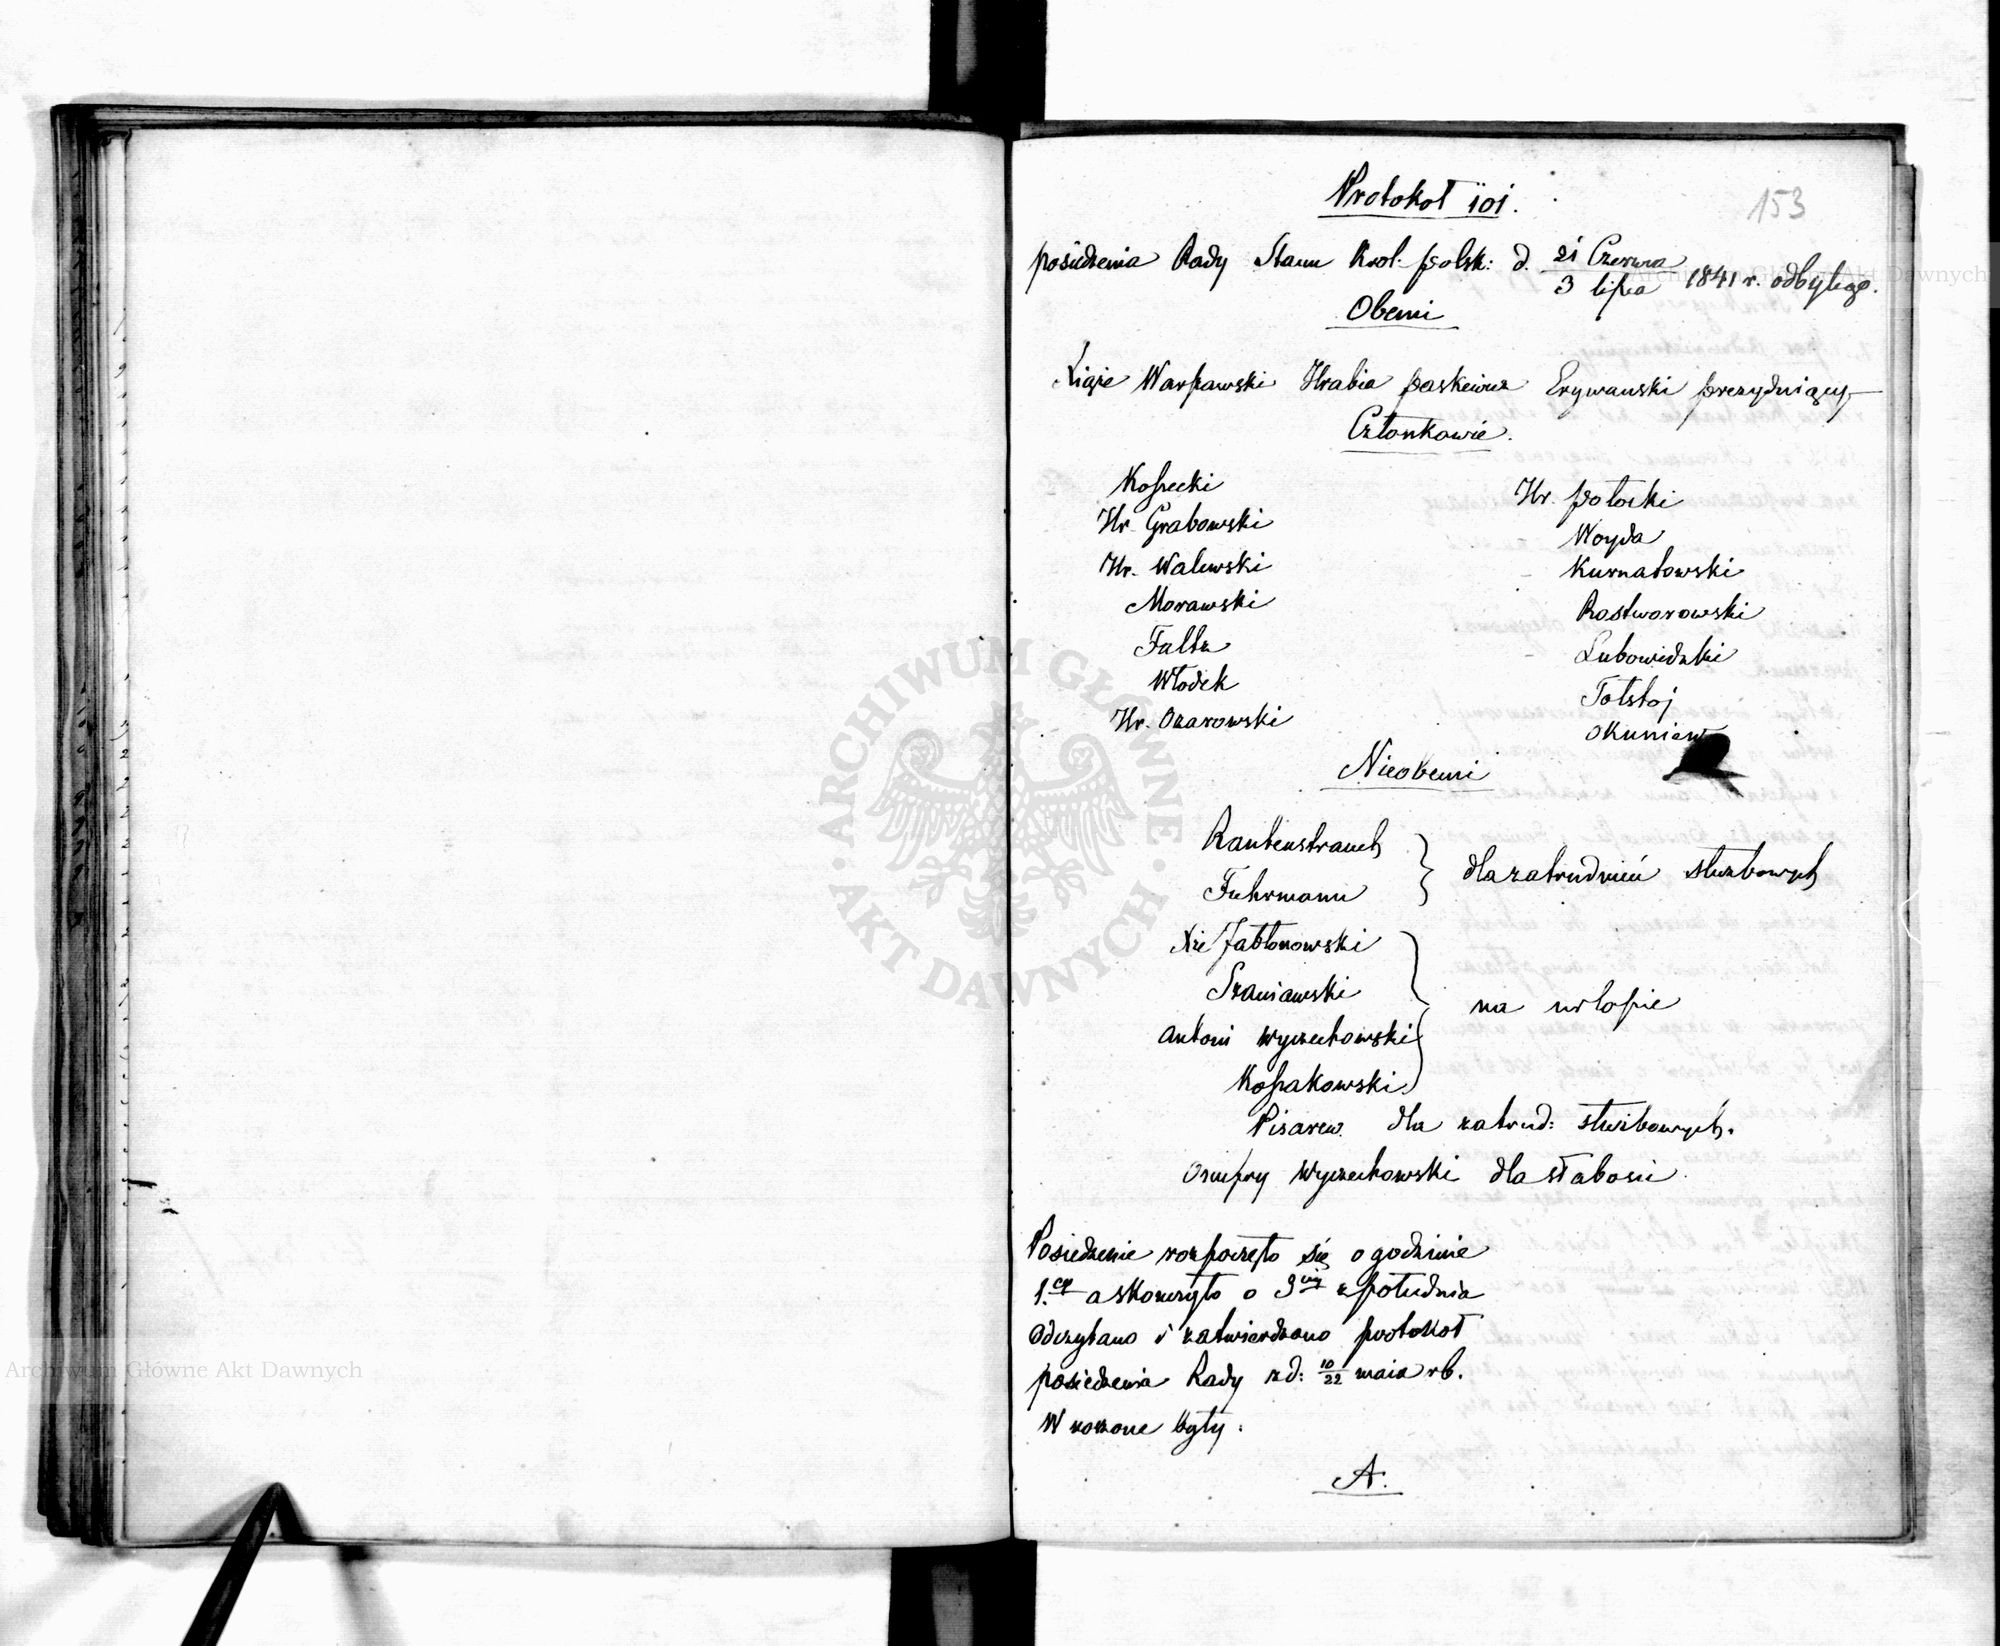 153
Protokoł 101.
posiedzenia Rady Stanu Król: Polsk: d. 21 Czerwca / 3 lipca 1841 r. odbytego.
Obecni
Xiąże Warszawski Hrabia Paskiewicz Erywański prezydujący
Członkowie.
Kossecki
Hr. Grabowski
Hr. Walewski
Morawski
Faltz
Włodek
Hr. Ożarowski
Hr. Potocki
Woyda
Kurnatowski
Rostworowski
Lubowidzki
Tołstoj
Okuniew
Nieobecni
Rautenstrauch
Fuhrmann
dla zatrudnień służbowych
Xże Jabłonowski
Szaniawski
Antoni Wyczechowski
Kossakowski
na urlopie
Pisarew. dla zatrud: służbowych.
Onufry Wyczechowski dla słabości
Posiedzenie rozpoczęło się o godzinie
1.ej a skończyło o 3ciej z południa
Odczytano i zatwierdzono protokół
posiedzenia Rady z d: 10/22 maia rb.
Wnoszone były:
A.
ARCHIWUM GŁÓWNE AKT DAWNYCH
Archiwum Główne Akt Dawnych
Archiwum Główne Akt Dawnych